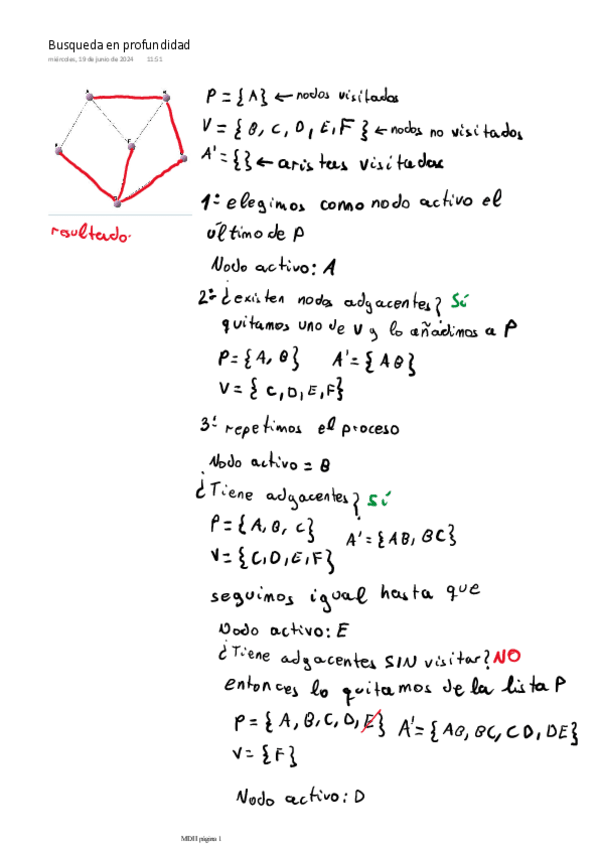 Busqueda en profundidad
miércoles, 19 de junio de 2024 11:51
P = {A} ← nodos visitados
V = {B, C, D, E, F} ← nodos no visitados
A' = {} ← aristas visitadas
resultado.
1º elegimos como nodo activo el
último de P
Nodo activo: A
2º ¿existen nodos adgacentes? Sí
quitamos uno de V y lo añadimos a P
P = {A, B} A' = {AB}
V = {C, D, E, F}
3º repetimos el proceso
Nodo activo = B
¿Tiene adgacentes? Sí
P = {A, B, C} A' = {AB, BC}
V = {C, D, E, F}
seguimos igual hasta que
Nodo activo: E
¿Tiene adgacentes SIN visitar? NO
entonces lo quitamos de la lista P
P = {A, B, C, D, E} A' = {AB, BC, CD, DE}
V = {F}
Nodo activo: D
MDII página 1